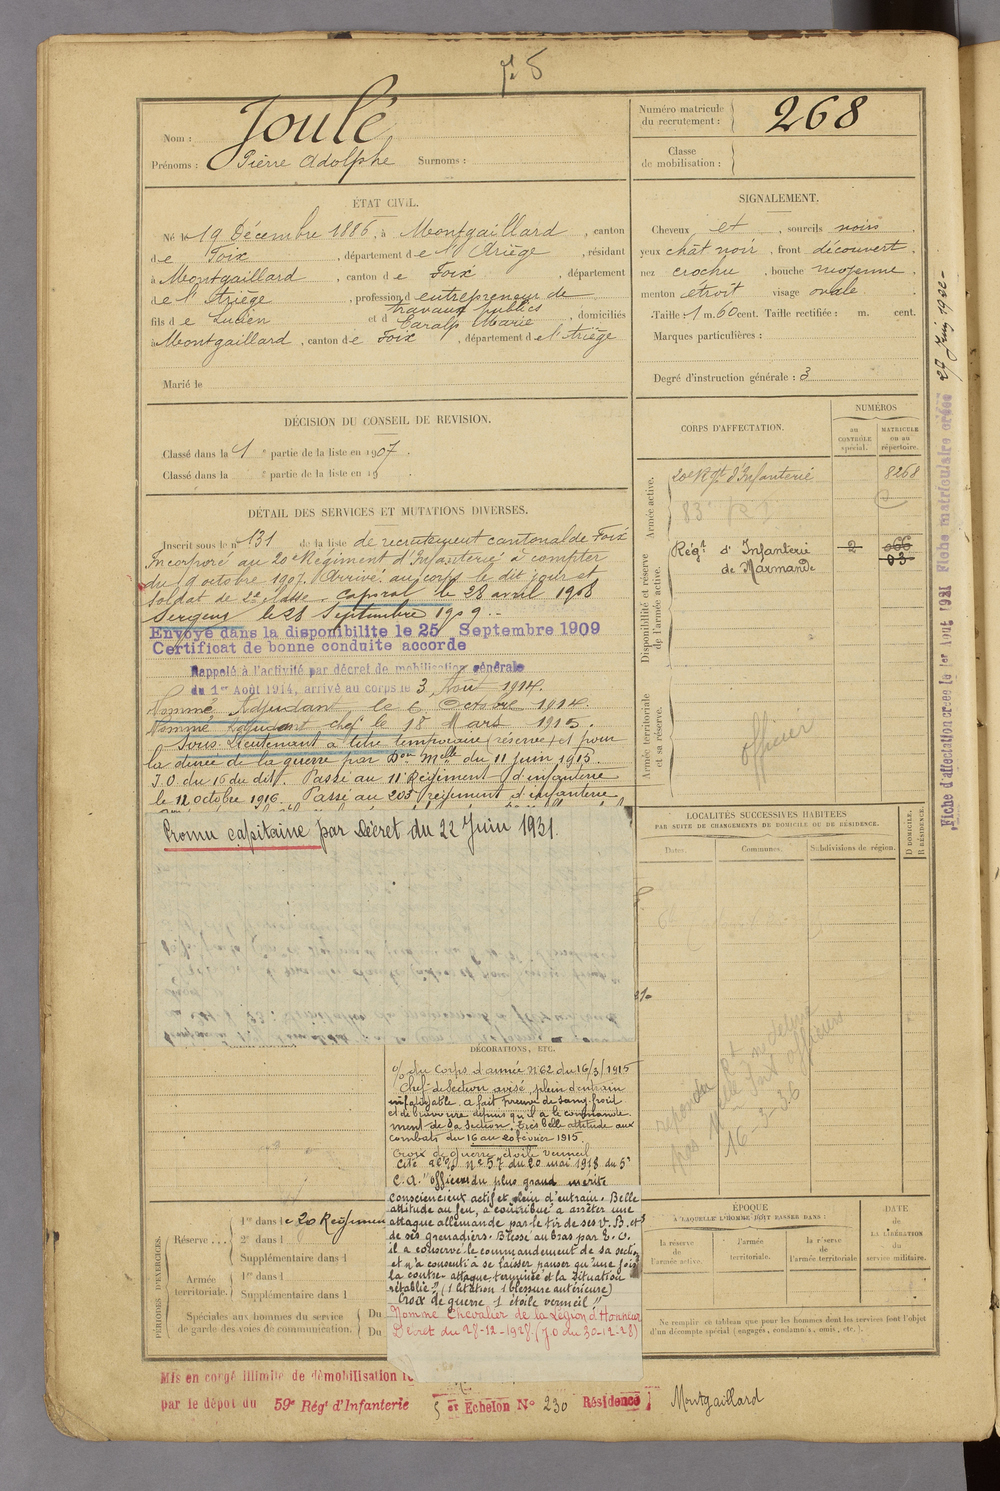 Nom : Joulé
Prénoms : Pierre Adolphe Surnoms :
ÉTAT CIVIL.
Né le 19 Décembre 1886, à Montgaillard, canton
de Foix, département de l'Ariège, résidant
à Montgaillard, canton de Foix, département
de l'Ariège, profession d entrepreneur de
travaux publics
fils de Lucien et d Caralp Marie, domiciliés
à Montgaillard, canton de Foix, département de l'Ariège
Marié le
DÉCISION DU CONSEIL DE REVISION.
Classé dans la 1 e partie de la liste en 1907.
Classé dans la e partie de la liste en 19 .
DÉTAIL DES SERVICES ET MUTATIONS DIVERSES.
Inscrit sous le n° 131 de la liste de recrutement cantonal de Foix
Incorporé au 20e Régiment d'Infanterie à compter
du 9 octobre 1907. Arrivé au corps le dit jour et
soldat de 2e classe. Caporal le 28 avril 1908
Sergent le 28 Septembre 1909..
Envoyé dans la disponibilite le 25 Septembre 1909
Certificat de bonne conduite accorde
Rappelé à l'activité par décret de mobilisation générale
du 1er Août 1914, arrivé au corps le 3 Août 1914.
Nommé Adjudant le 6 Octobre 1914.
Nommé Adjudant chef le 18 Mars 1915.
Sous Lieutenant à titre temporaire (réserve) et pour
la durée de la guerre par Don Melle du 11 juin 1915.
J.O. du 16 du dit. Passé au 11e Régiment d'infanterie
le 12 octobre 1916. Passé au 205 régiment d'infanterie
Promu capitaine par Décret du 22 Juin 1931.
DÉCORATIONS, ETC.
du Corps d'armée N°62 du 16/3/1915
Chef de Section avisé, plein d'entrain
infatigable. a fait preuve de sang-froid
et de bravoure depuis qu'il a le commande
ment de sa section. Très belle attitude aux
combats du 16 au 20 février 1915.
Croix de guerre étoile vermeil
Cité N° 57 du 20 mai 1918 du 5e
C.A. "officier du plus grand mérite
consciencieux actif et plein d'entrain. Belle
attitude au feu, a contribué à arrêter une
attaque allemande par le tir de ses V.B. et
de ses grenadiers. Blessé au bras par E.O.
il a conservé le commandement de sa section
et n'a consenti à se laisser panser qu'une fois
la contre-attaque terminée et la situation
rétablie" (1 citation 1 blessure antérieure)
Croix de guerre 1 étoile vermeil"
Nommé Chevalier de la Légion d'Honneur
Décret du 28-12-1928 (J.O du 30-12-28)
PÉRIODES D'EXERCICES.
Réserve ...
1re dans le 20 Régiment
2e dans l
Supplémentaire dans l
Armée territoriale.
1re dans l
Supplémentaire dans l
Spéciales aux hommes du service
de garde des voies de communication.
Du
Du
Mis en congé illimité de démobilisation le
par le dépot du 59e Régt d'Infanterie 5 er Echelon No 230 Résidence Montgaillard
Numéro matricule
du recrutement : 268
Classe
de mobilisation :
SIGNALEMENT.
Cheveux et, sourcils noirs
yeux chât noir, front découvert,
nez crochu, bouche moyenne,
menton étroit visage ovale
Taille : 1 m. 60 cent. Taille rectifiée : m. cent.
Marques particulières :
Degré d'instruction générale : 3
CORPS D'AFFECTATION.
NUMÉROS
AU CONTRÔLE spécial.
MATRICULE ou au répertoire.
Armée active.
20e Rgt d'Infanterie 8268
83e RI
Disponibilité et réserve
de l'armée active.
Régt d'Infanterie 2 066
de Marmande 03
Armée territoriale
et sa réserve.
Officier
LOCALITÉS SUCCESSIVES HABITÉES
PAR SUITE DE CHANGEMENTS DE DOMICILE OU DE RÉSIDENCE.
Dates. Communes. Subdivisions de région.
D DOMICILE.
R RÉSIDENCE.
16-3-36
ÉPOQUE
À LAQUELLE L'HOMME DOIT PASSER DANS :
la réserve
de
l'armée active.
l'armée
territoriale.
la réserve
de
l'armée territoriale
DATE
de
LA LIBÉRATION
du
service militaire.
Ne remplir ce tableau que pour les hommes dont les services font l'objet
d'un décompte spécial (engagés, condamnés, omis, etc.).
Fiche d'affectation créée le 1er Août 1931 Fiche matriculaire créée 27 Juin 1930